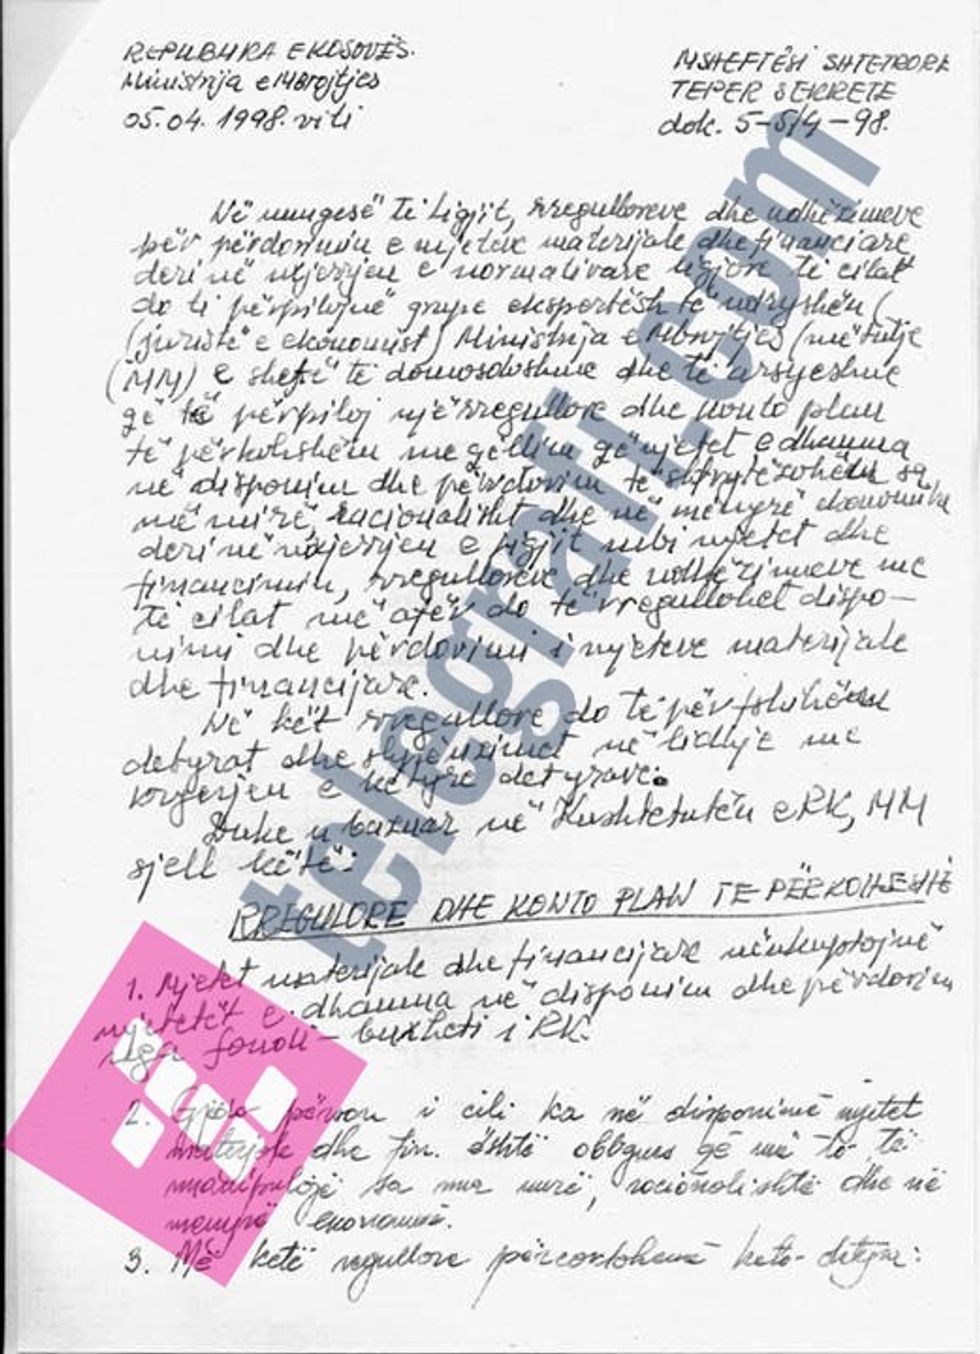 REPUBLIKA E KOSOVËS.
Ministrija e Mbrojtjes
05.04.1998. viti
MSHEFTËSI SHTETRORE
TEPER SEKRETE
dok. 5-5/4-98.
Në mungesë të Ligjit, rregulloreve dhe udhëzimeve
për përdorimin e mjeteve materijale dhe financiare
deri në nxjerrjen e normativave ligjore të cilat
do ti përpilojnë grupe ekspertësh të ndryshëm (
(juristë e ekonomist) Ministrija e Mbrojtjes (më tutje
(MM) e sheh të domosdoshme dhe të arsyeshme
që të përpiloj një rregullore dhe konto plan
të përkohshëm me qëllim që mjetet e dhanuna
në disponim dhe përdorim të shfrytëzohen sa
më mirë, racionalisht dhe në mënyrë ekonomike
deri në nxjerrjen e ligjit mbi mjetet dhe
financimin, rregulloreve dhe udhëzimeve me
të cilat më afër do të rregullohet dispo-
nimi dhe përdorimi i mjeteve materijale
dhe financijare.
Në kët rregullore do të përfshihen
detyrat dhe shpjegimet në lidhje me
kryerjen e këtyre detyrave.
Duke u bazuar në Kushtetutën e RK, MM
sjell këtë:
RREGULORE DHE KONTO PLAN TE PËRKOHSHËM
1. Mjetet materijale dhe financijare nënkuptojnë
mjetetët e dhanuna në disponim dhe përdorim
nga fondi - buxheti i RK.
2. Gjdo person i cili ka në disponimë mjetet
materjale dhe fin. është obligues që me to të
manipulojë sa ma mirë, racionalishtë dhe në
mënyrë ekonomike.
3. Me ketë regullore përcaktohenë keto detyra:
telegrafi.com